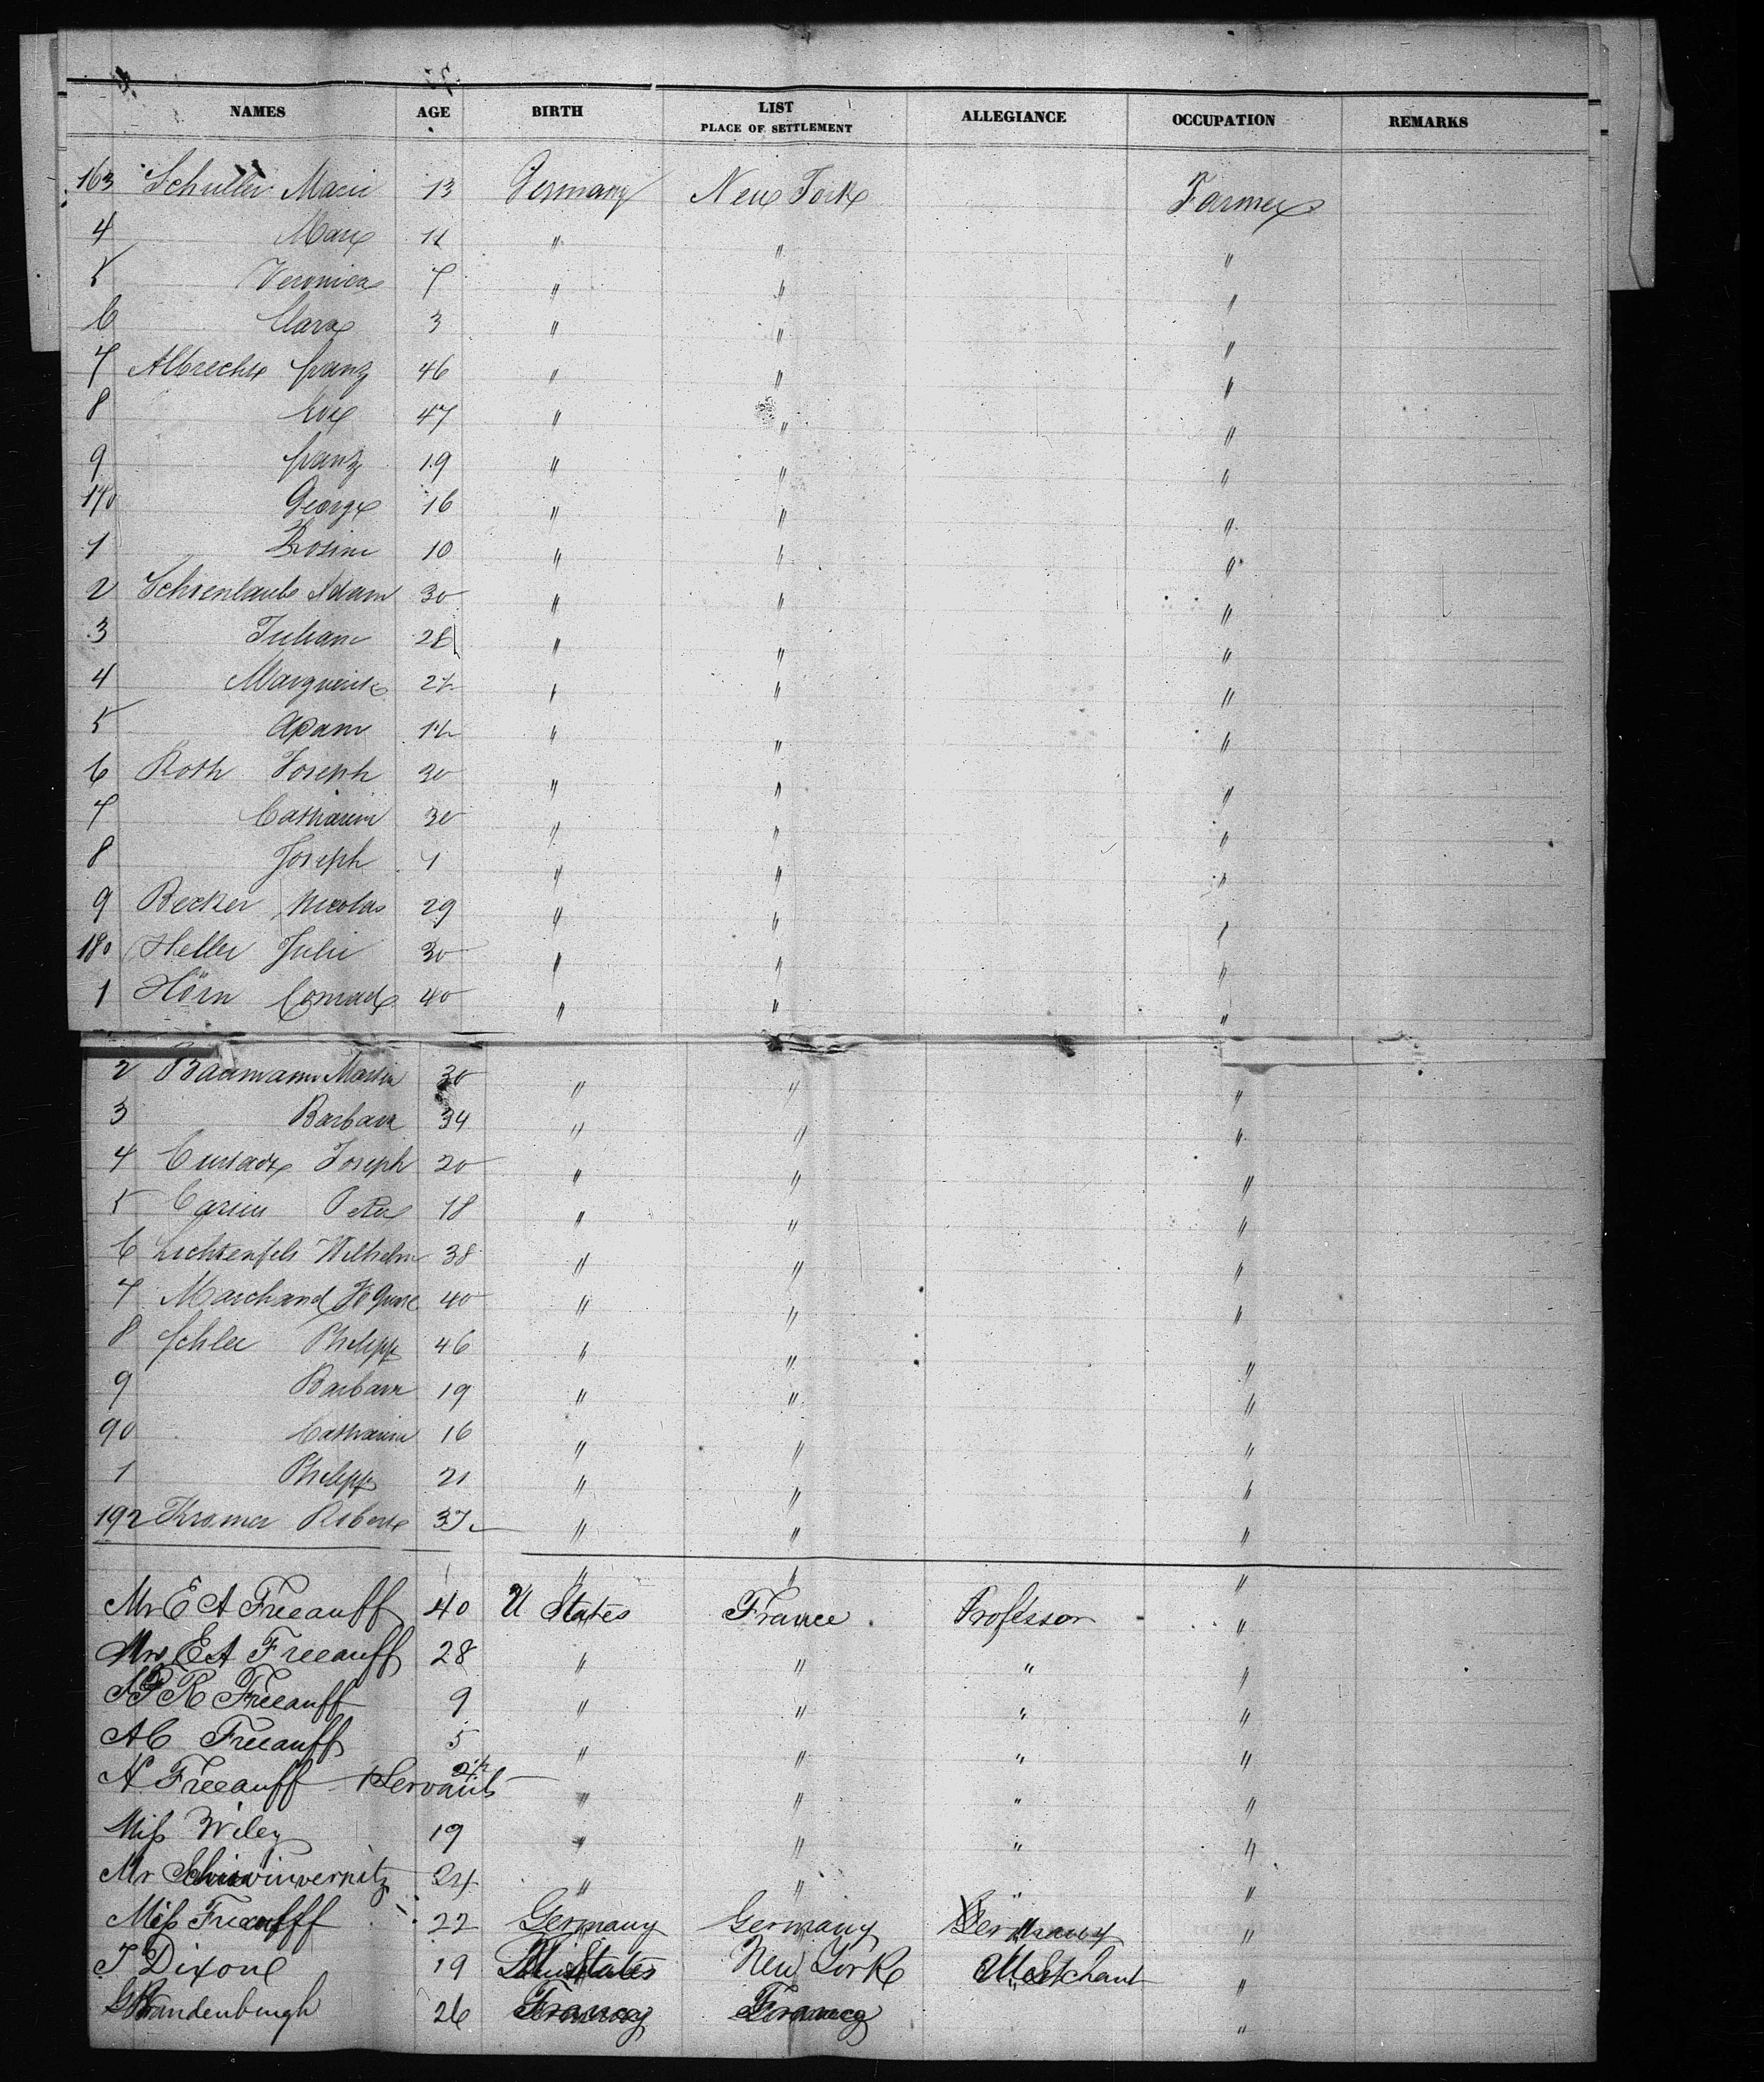 NAMES AGE BIRTH LIST PLACE OF SETTLEMENT ALLEGIANCE OCCUPATION REMARKS
163 Schuller Marie 13 Germany New York Farmer
4 Marie 11 " " "
5 Veronica 7 " " "
6 Clara 3 " " "
7 Albrecht Franz 46 " " "
8 Eva 47 " " "
9 Franz 19 " " "
170 George 16 " " "
1 Rosine 10 " " "
2 Adam 30 " " "
3 Juliane 28 " " "
4 Marguerite " " "
5 Adam " " "
6 Roth Joseph 30 " " "
7 Catharine 30 " " "
8 Joseph 1 " " "
9 Becker Nicolas 29 " " "
180 Heller Julie 30 " " "
1 Horn Conrad 40 " " "
2 Baumann Martin 30 " " "
3 Barbara 34 " " "
4 Joseph 20 " " "
5 Peter 18 " " "
6 Lichtenfels Wilhelm 38 " " "
7 Marchand 40 " " "
8 Schlee Philipp 46 " " "
9 Barbara 19 " " "
90 Catharine 16 " " "
1 Philipp 21 " " "
192 Kramer Robert " " "
" " "
Mr E A Freeauff 40 U States France Professor "
Mrs E A Freeauff 28 " " " "
R Freeauff 9 " " " "
A C Freeauff 5 " " " "
Freeauff Servants " " " "
Miss Wiley 19 " " " "
Mr 24 " " "
Miss Freeauff 22 Germany Germany Germany "
Dixone 19 States New York Merchant "
Brandenburgh 26 "